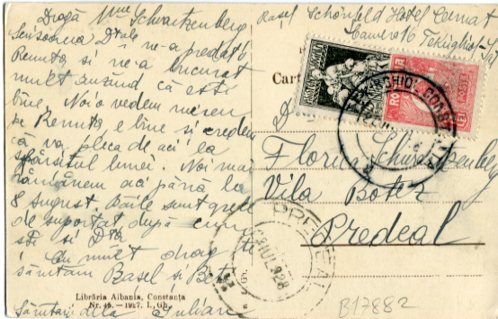 Dragă Mme Schwartzenberg,
Scrisoarea Dtale ne-a predat-o
Renuța și ne-a bucurat
mult auzind că ești
bine. Noi o vedem mereu
pe Renuța e bine și credem
că va pleca de aci la
sfârșitul lunei. Noi mai
rămânem aci până la
8 august. Băile sunt grele
de suportat după cum
știi și Dta.
Cu mult drag te
sărutăm Basel și
Sărutări dela Iulian
Librăria Albania, Constanța
Nr. 46. — 1927. I. Gh.
Basel Schönfeld Hotel
Camera 16 Tekirghiol
Cart
ROMANIA
TEKIRGHIOL CONSTANTA
Florica Schwartzenberg
Vila Botez
Predeal
PREDEAL
IUL 928
B17882